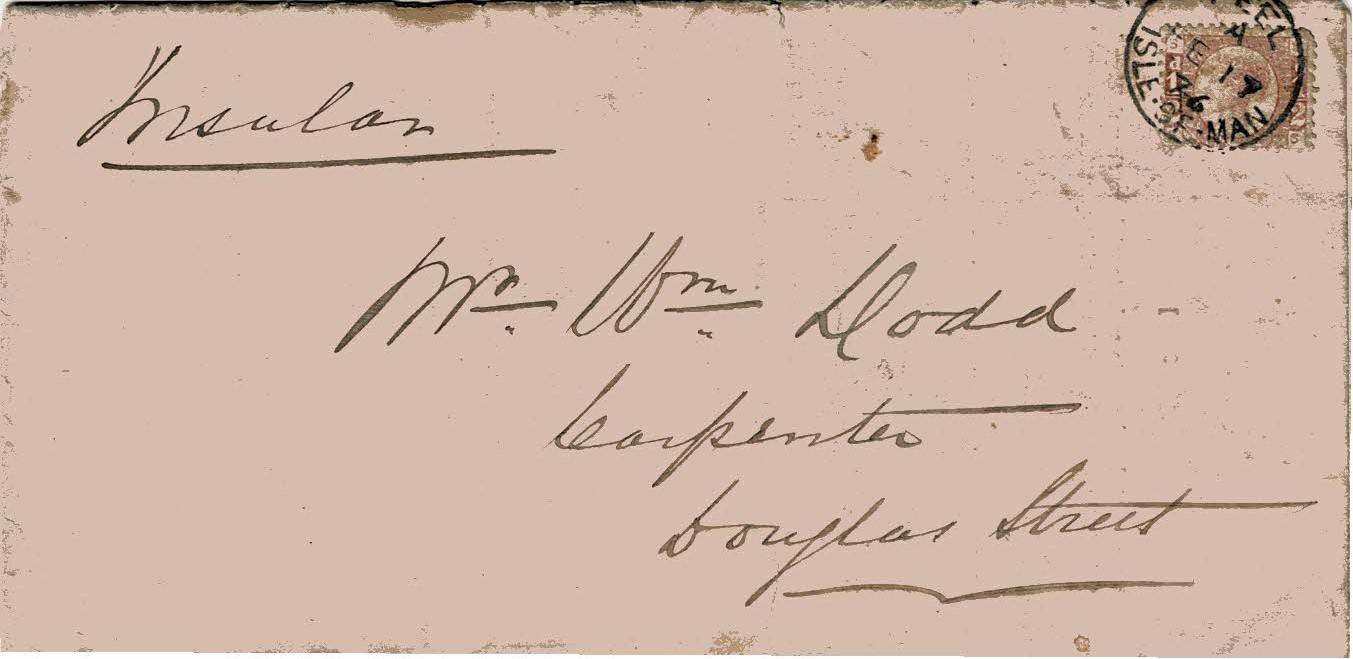 Insular
Mr. Wm. Dodd
Carpenter
Douglas Street
ISLE · OF · MAN
A